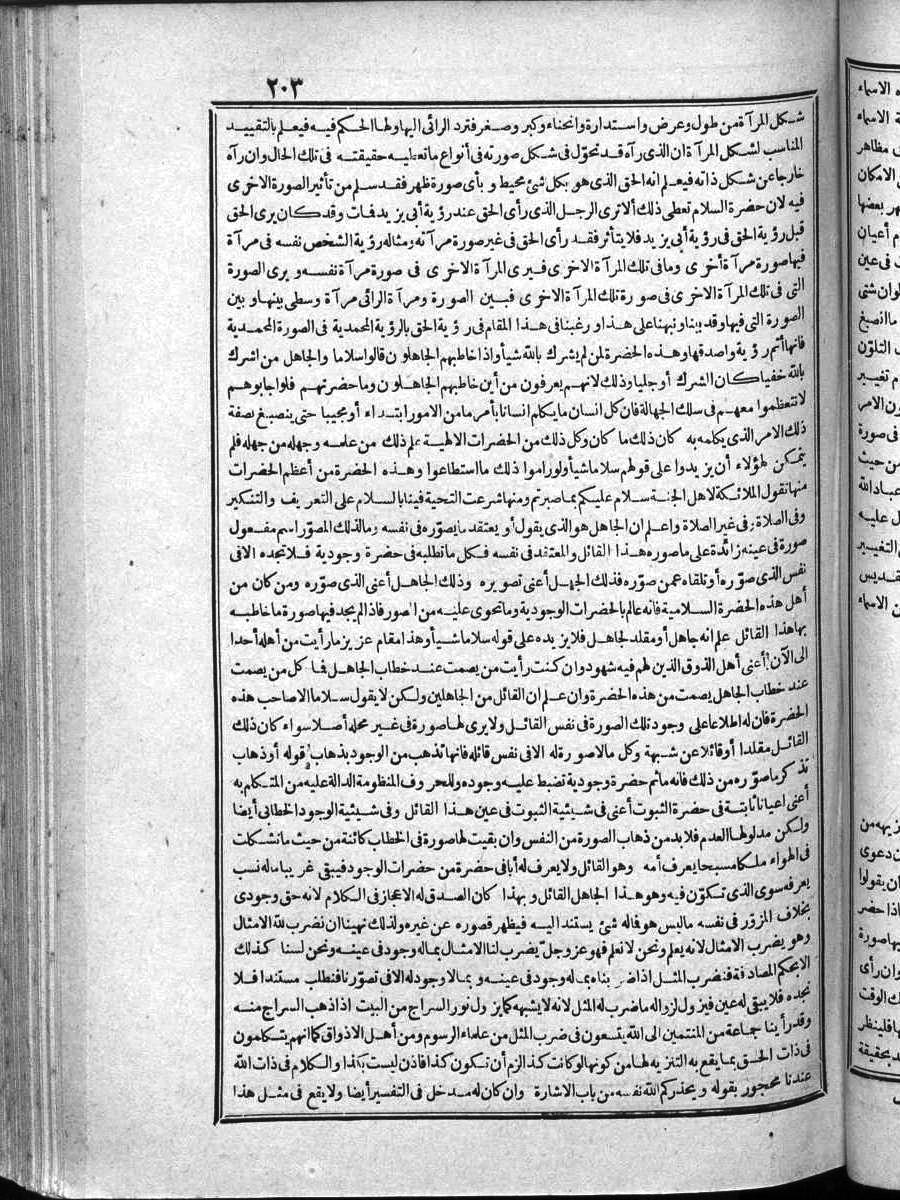 ٢٠٣
شكل المرآة من طول وعرض واستدارة وانحناء وكبر وصغر فترد الرائى اليها ولها الحكم فيه فيعلم بالتقييد
المناسب لشكل المرآة ان الذى رآه قد تحوّل فى شكل صورته فى أنواع ما تعطيه حقيقته فى تلك الحال وان رآه
خارجا عن شكل ذاته فيعلم انه الحق الذى هو بكل شئ محيط وبأى صورة ظهر فقد سلم من تأثير الصورة الاخرى
فيه لان حضرة السلام تعطى ذلك ألا ترى الرجل الذى رأى الحق عند رؤية أبى يزيد فمات وقد كان يرى الحق
قبل رؤية الحق فى رؤية أبى يزيد فلا يتأثر فقد رأى الحق فى غير صورة مرآته ومثاله رؤية الشخص نفسه فى مرآة
فيها صورة مرآة أخرى وما فى تلك المرآة الاخرى فيرى المرآة الاخرى فى صورة مرآة نفسه ويرى الصورة
التى فى تلك المرآة الاخرى فى صورة تلك المرآة الاخرى فبين الصورة ومرآة الرائى مرآة وسطى بينها وبين
الصورة التى فيها وقد بينا ونبهنا على هذا ورغبنا فى هذا المقام فى رؤية الحق بالرؤية المحمدية فى الصورة المحمدية
فانها أتم رؤية وأصدقها وهذه الحضرة لمن لم يشرك بالله شيأ واذا خاطبهم الجاهلون قالوا سلاما والجاهل من اشرك
بالله خفيا كان الشرك أو جليا وذلك لانهم يعرفون من أين خاطبهم الجاهلون وما حضرتهم فلو أجابوهم
لانتظموا معهم فى سلك الجهالة فان كل انسان ما يكلم انسانا بأمر ما من الامور ابتداء أو مجيبا حتى ينصبغ بصفة
ذلك الامر الذى يكلمه به كان ذلك ما كان وكل ذلك من الحضرات الالهية علم ذلك من علمه وجهله من جهله فلم
يتمكن لهؤلاء أن يزيدوا على قولهم سلاما شيأ ولو راموا ذلك ما استطاعوا وهذه الحضرة من أعظم الحضرات
منها تقول الملائكة لاهل الجنة سلام عليكم بما صبرتم ومنها شرعت التحية فينا بالسلام على التعريف والتنكير
وفى الصلاة وفى غير الصلاة واعلم ان الجاهل هو الذى يقول أو يعتقد ما يصوّره فى نفسه وما لذلك المصوّر اسم مفعول
صورة فى عينه زائدة على ما صوره هذا القائل والمعتقد فى نفسه فكل ما تطلبه فى حضرة وجودية فلا تجده الا فى
نفس الذى صوّره أو تلقاه عمن صوّره فذلك الجهل أعنى تصويره وذلك الجاهل أعنى الذى صوّره ومن كان من
أهل هذه الحضرة السلامية فانه عالم بالحضرات الوجودية وما تحوى عليه من الصور فاذا لم يجد فيها صورة ما خاطبه
بها هذا القائل علم انه جاهل أو مقلد لجاهل فلا يزيده على قوله سلاما شيأ وهذا مقام عزيز ما رأيت من أهله أحدا
الى الآن أعنى أهل الذوق الذين لهم فيه شهود وان كنت رأيت من يصمت عند خطاب الجاهل فما كل من يصمت
عند خطاب الجاهل يصمت من هذه الحضرة وان علم ان القائل من الجاهلين ولكن لا يقول سلاما الا صاحب هذه
الحضرة فان له اطلاعا على وجود تلك الصورة فى نفس القائل ولا يرى لها صورة فى غير محله أصلا سواء كان ذلك
القائل مقلدا أو قائلا عن شبهة وكل ما لا صورة له الا فى نفس قائله فانها تذهب من الوجود بذهاب قوله أو ذهاب
تذكر ما صوّره من ذلك فانه ما ثم حضرة وجودية تضبط عليه وجوده وللحروف المنظومة الدالة عليه من المتكلم به
أعنى اعيانا ثابتة فى حضرة الثبوت أعنى فى شيئية الثبوت فى عين هذا القائل وفى شيئية الوجود الخطابى أيضا
ولكن مدلولها العدم فلا بد من ذهاب الصورة من النفس وان بقيت لها صورة فى الخطاب كائنة من حيث ما تشكلت
فى الهواء ملكا مسبحا يعرف أمه وهو القائل ولا يعرف له أبا فى حضرة من حضرات الوجود فيبقى غريبا ما له نسب
يعرفه سوى الذى تكوّن فيه وهو هذا الجاهل القائل وبهذا كان الصدق له الاعجاز فى الكلام لانه حق وجودى
بخلاف المزوّر فى نفسه ما ليس هو فما له شئ يستند اليه فيظهر قصوره عن غيره ولذلك نهينا ان نضرب لله الامثال
وهو يضرب الامثال لانه يعلم ونحن لا نعلم فهو عز وجلّ يضرب لنا الامثال بما له وجود فى عينه ونحن لسنا كذلك
الا بحكم المصادفة فنضرب المثل اذا ضربناه بما له وجود فى عينه وبما لا وجود له الا فى تصوّرنا فنطلب مستندا فلا
نجده فلا يبقى له عين فيزول لزواله ما ضرب له المثل لانه لا يشبهه كما يزول نور السراج من البيت اذا ذهب السراج منه
وقد رأينا جماعة من المنتمين الى الله يتسعون فى ضرب المثل من علماء الرسوم ومن أهل الاذواق كما انهم يتكلمون
فى ذات الحق بما يقع به التنزيه لها من كونها لو كانت كذا لزم أن تكون كذا فاذن ليست بكذا والكلام فى ذات الله
عندنا محجور بقوله ويحذركم الله نفسه من باب الاشارة وان كان له مدخل فى التفسير أيضا ولا يقع فى مثل هذا